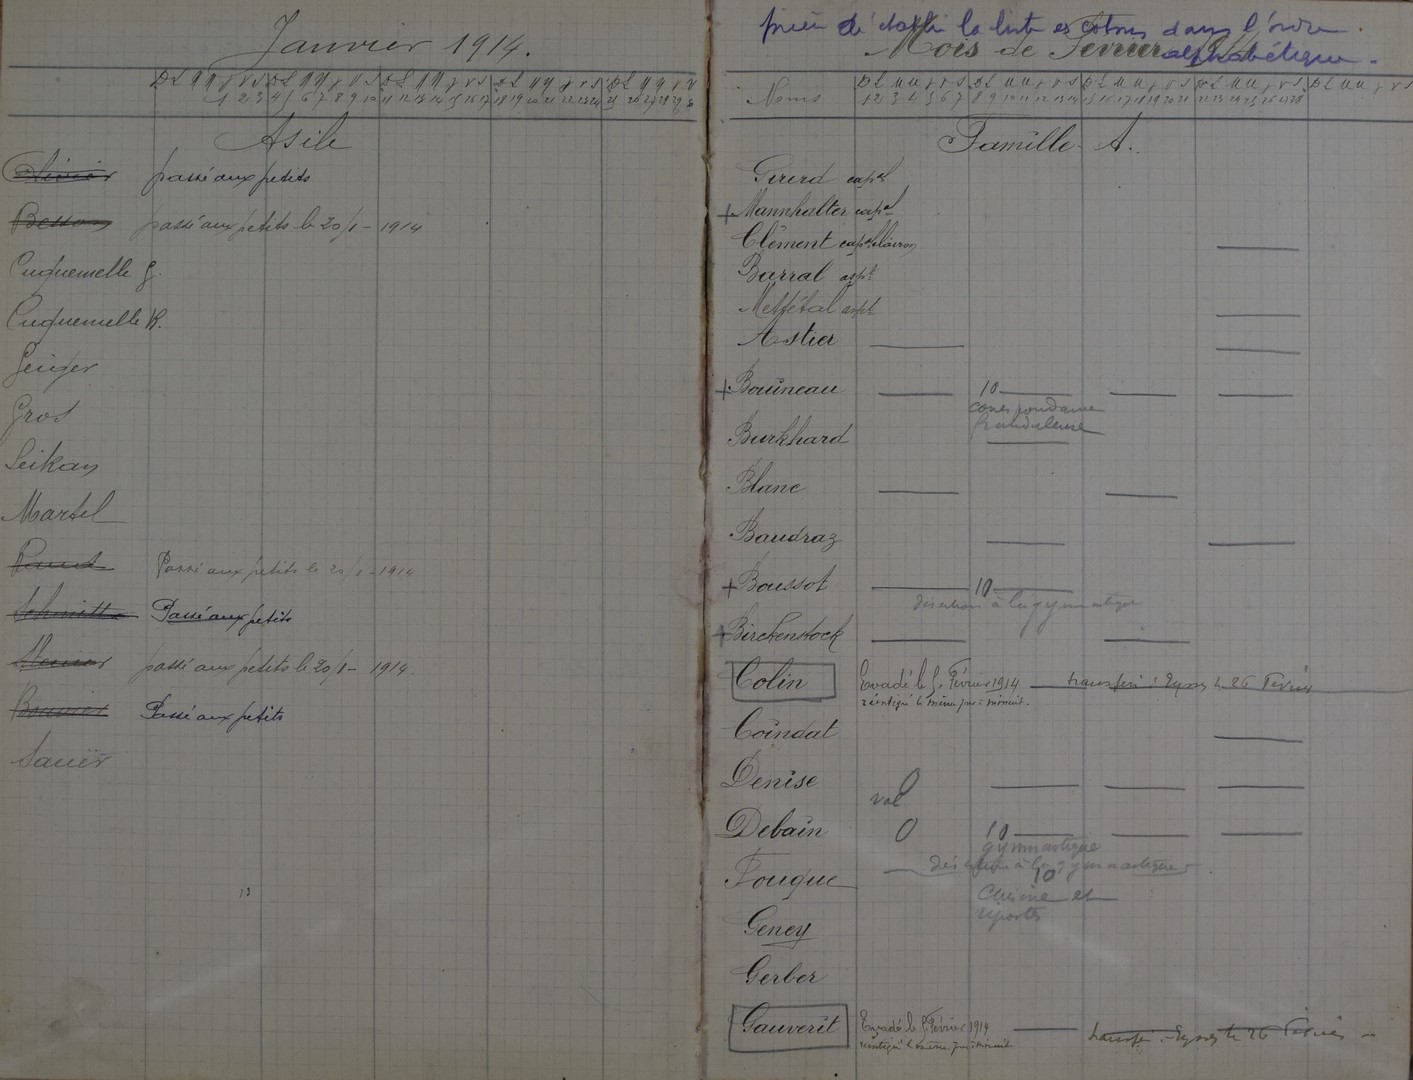 Janvier 1914.
D L M M J V S D L M M J V S D L M M J V S D L M M J V S D L M M J V S
1 2 3 4 5 6 7 8 9 10 11 12 13 14 15 16 17 18 19 20 21 22 23 24 25 26 27 28 29 30
Asile
Olivier passé aux petits
Besson passé aux petits le 20/1 - 1914
Cuquemelle G.
Cuquemelle R.
Geiger
Gros
Leikan
Martel
Raud Passé aux petits le 20/1 - 1914
Schmitt Passé aux petits
passé aux petits le 20/1 - 1914
Bouvier Passé aux petits
Sauër
13
prière d'établir la liste et colons dans l'ordre
alphabétique.
Mois de Février
Noms D L M M J V S D L M M J V S D L M M J V S D L M M J V S D L M M J V S
1 2 3 4 5 6 7 8 9 10 11 12 13 14 15 16 17 18 19 20 21 22 23 24 25 26 27 28
Famille A.
Girerd capal
+ Mannhalter capal
Clément capal clairon
Barral aspt
Mettétal aspt
Astier
+ Bouîneau 10
correspondance
frauduleuse
Burkhard
Blanc
Baudraz
+ Boussot 10
désertion à la gymnastique
+ Birckenstock
Colin Evadé le 5 Février 1914 transféré : Eysses le 26 Février
réintégré le même jour à minuit.
Coindat
Denise 0
vol
Debain 0 10
gymnastique
désertion à la gymnastique
Fouque 10
Cuisine et
reportes
Geney
Gerber
Gauverit Evadé le 5 Février 1914 transfé. Eysses le 26 Février
réintégré le même jour à minuit.